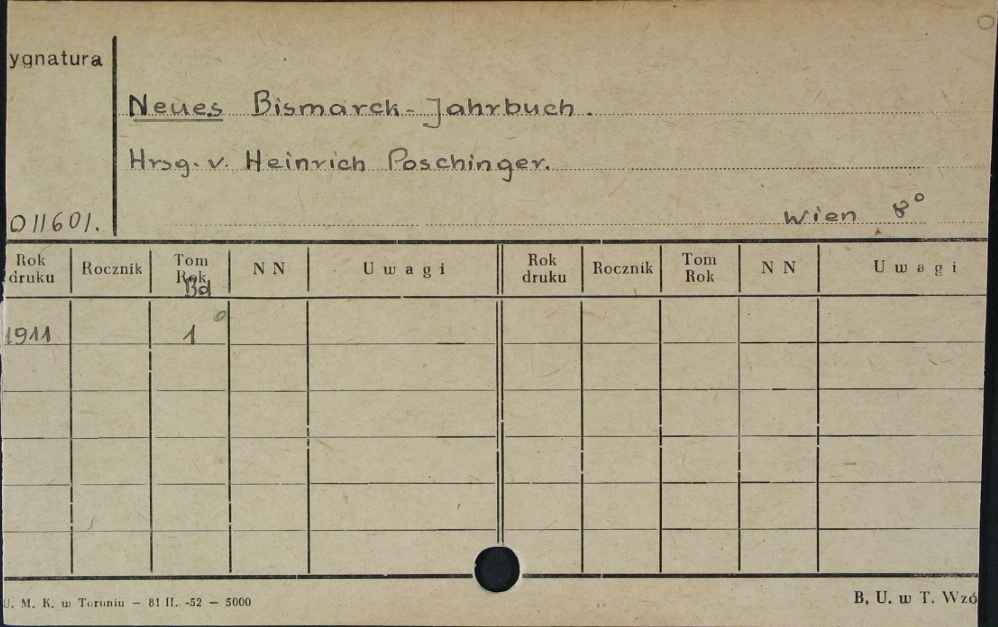 ygnatura
Neues Bismarck-Jahrbuch.
Hrsg. v. Heinrich Poschinger.
011601. Wien 8°
Rok druku Rocznik Tom Rok Bd NN Uwagi Rok druku Rocznik Tom Rok NN Uwagi
1911 1
U. M. K. w Toruniu – 81 II. -52 – 5000 B, U. w T. Wzó